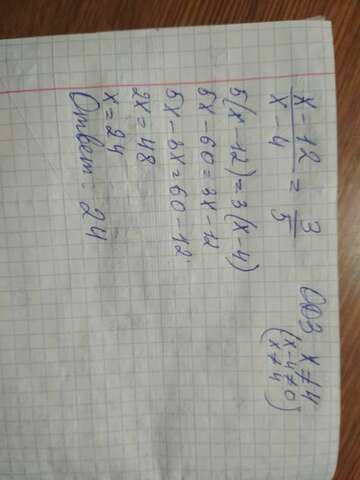 x-12/x-4 = 3/5
ОДЗ x≠4
(x-4≠0
x≠4)
5(x-12)=3(x-4)
5x-60=3x-12
5x-3x=60-12
2x=48
x=24
Ответ: 24